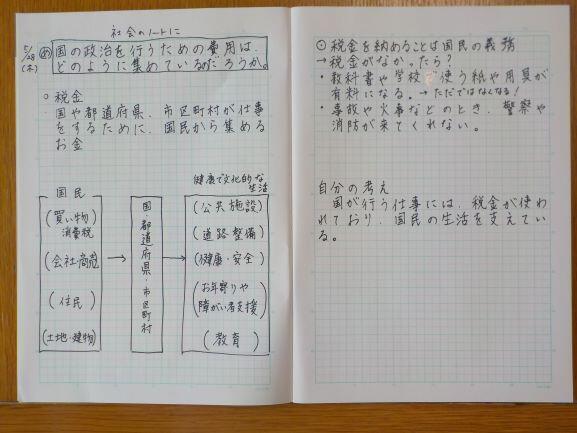 社会のノートに
5/28
(木)
め
国の政治を行うための費用は、
どのように集めているのだろうか。
○税金
・国や都道府県、市区町村が仕事
をするために、国民から集める
お金
国民
(買い物)
消費税
(会社・商売)
(住民)
(土地・建物)
国・都道府県・市区町村
健康で文化的な
生活
(公共施設)
(道路整備)
(健康・安全)
(お年寄りや
障がい者支援)
(教育)
⊙税金を納めることは国民の義務
→税金がなかったら?
・教科書や学校で使う紙や用具が
有料になる。→ただではなくなる!
・事故や火事などのとき、警察や
消防が来てくれない。
自分の考え
国が行う仕事には、税金が使わ
れており、国民の生活を支えてい
る。